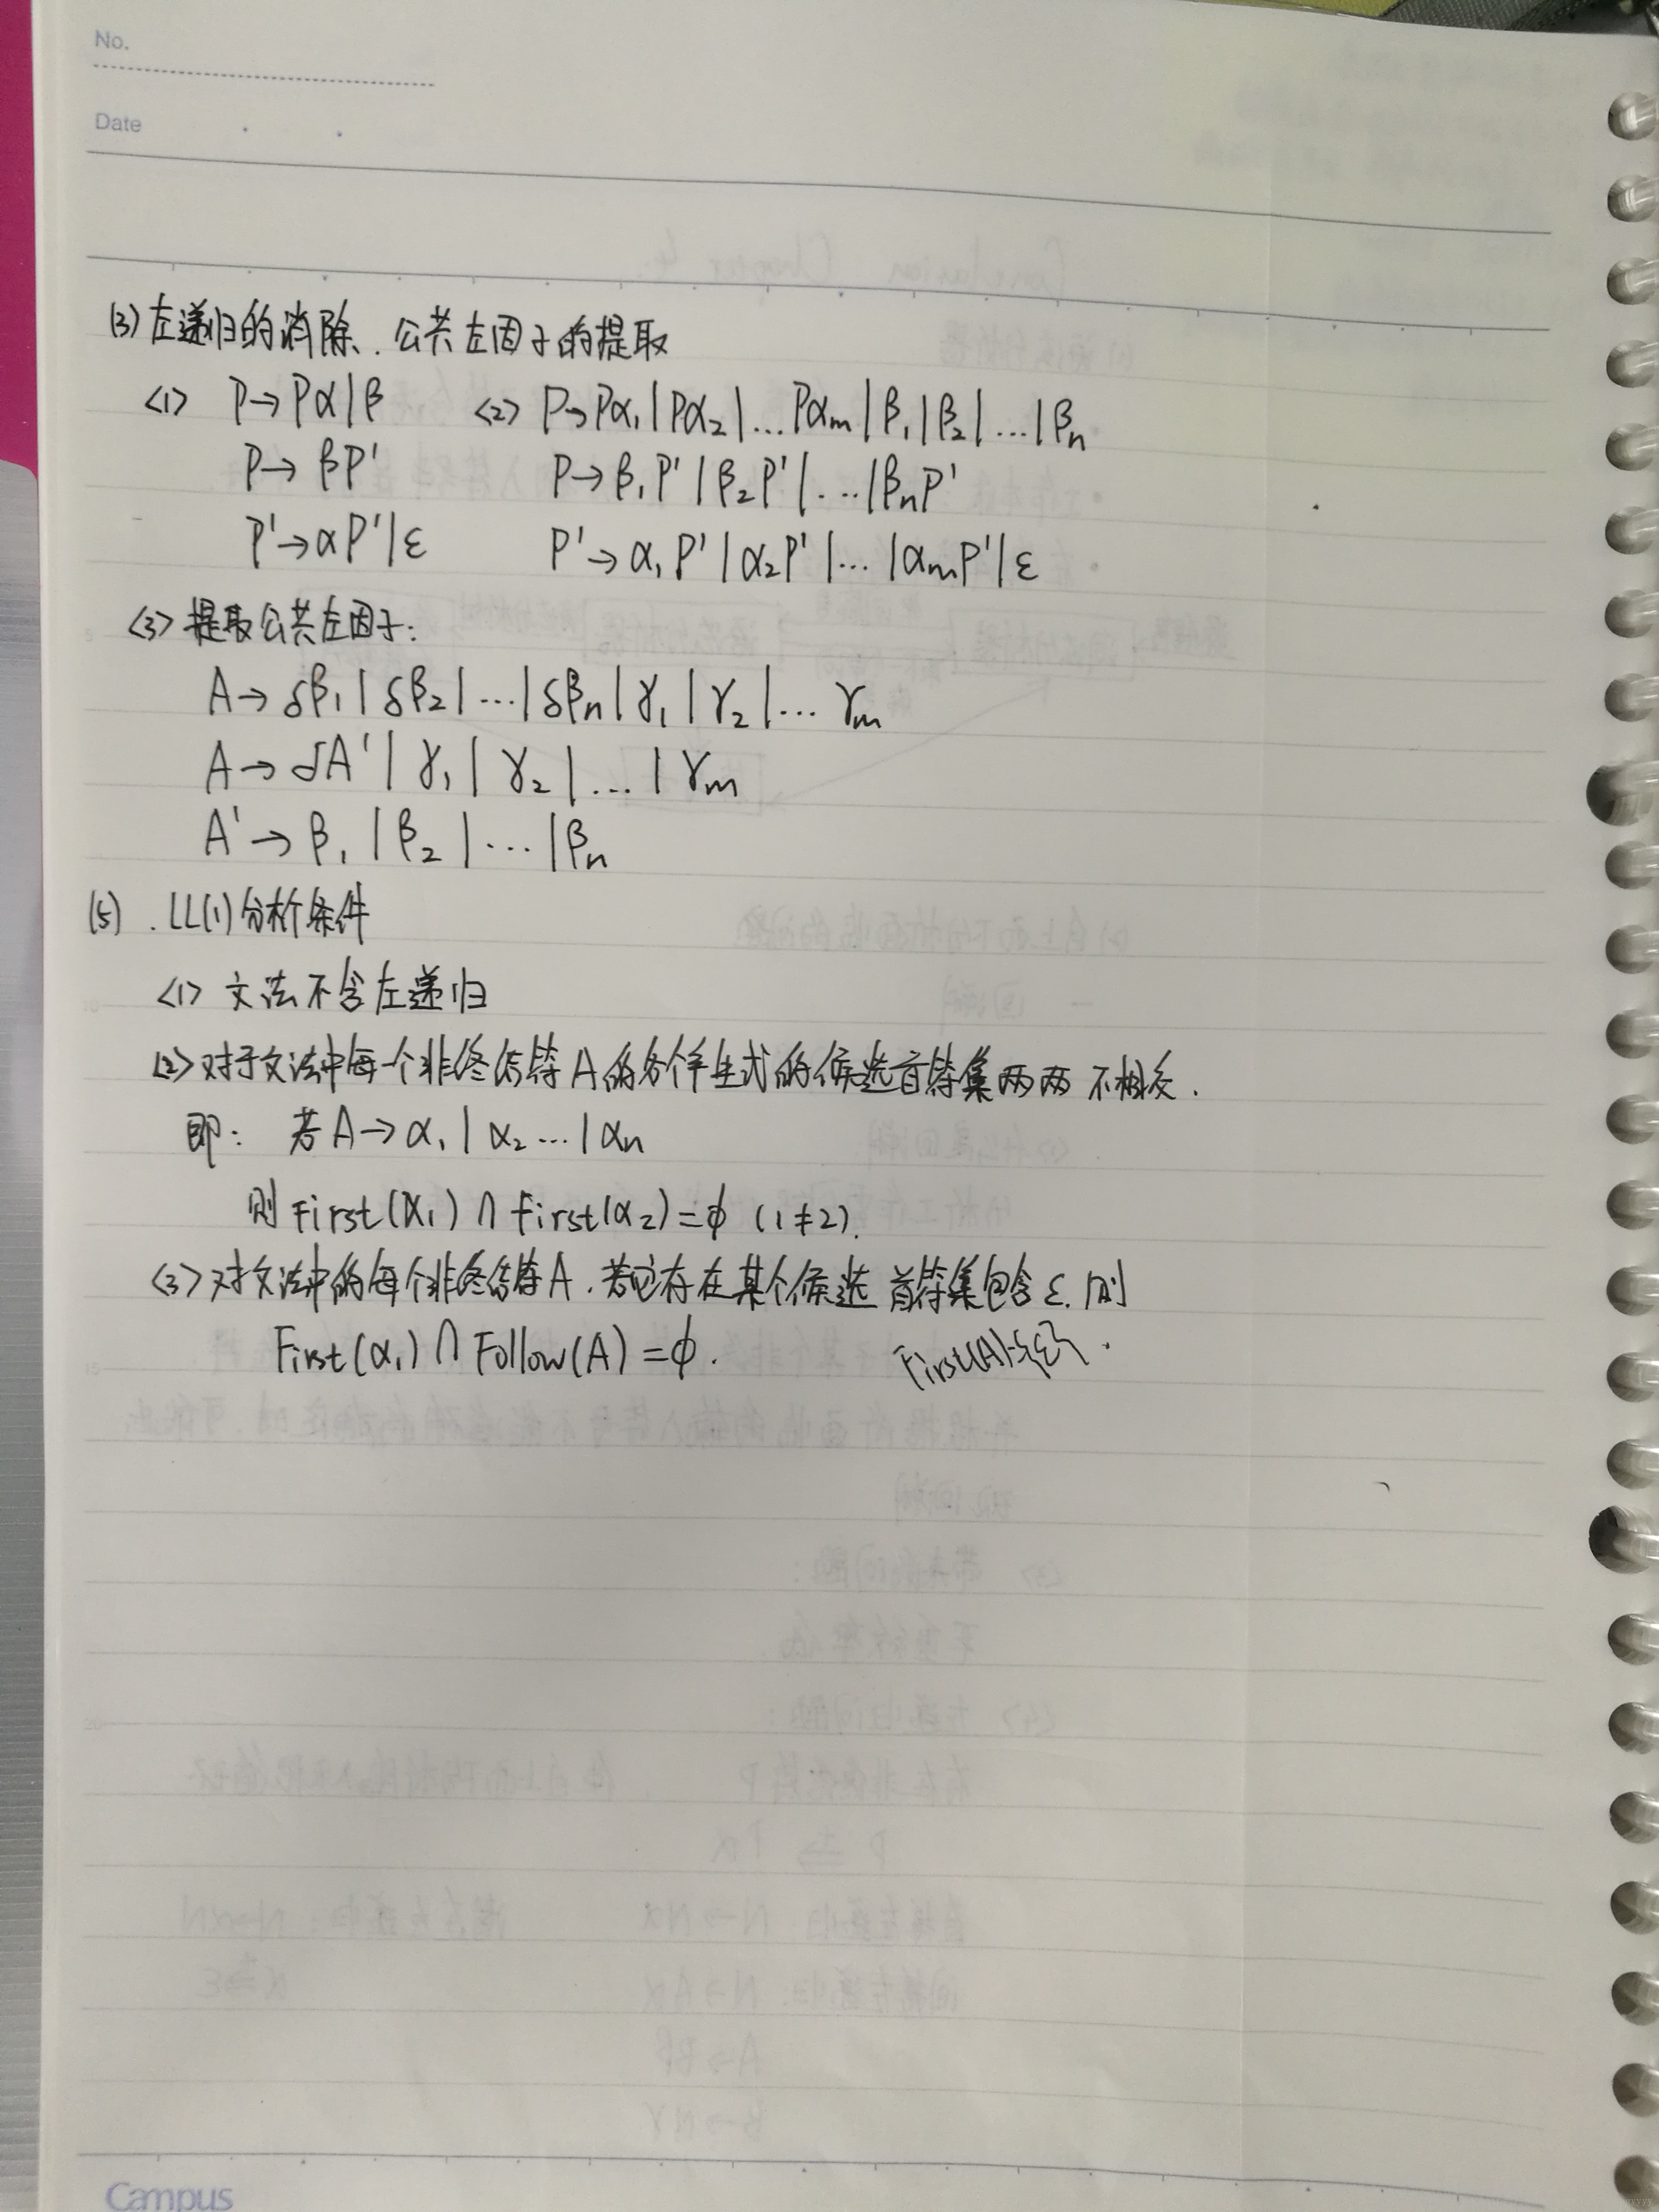 No.
Date
(3) 左递归的消除、公共左因子的提取
<1> P→Pα|β <2> P→Pα₁|Pα₂|...Pαm|β₁|β₂|...|βn
P→βP' P→β₁P'|β₂P'|...|βnP'
P'→αP'|ε P'→α₁P'|α₂P'|...|αmP'|ε
<3> 提取公共左因子:
A→δβ₁|δβ₂|...|δβn|γ₁|γ₂|...γm
A→δA'|γ₁|γ₂|...|γm
A'→β₁|β₂|...|βn
(5). LL(1)分析条件
<1> 文法不含左递归
<2> 对于文法中每一个非终结符A的各个产生式的候选首符集两两不相交.
即: 若A→α₁|α₂...|αn
则First(α₁)∩First(α₂)=ϕ (1≠2).
<3> 对文法中的每个非终结符A.若它存在某个候选首符集包含ε.则
First(α₁)∩Follow(A)=ϕ. First(A)-{ε}.
Campus